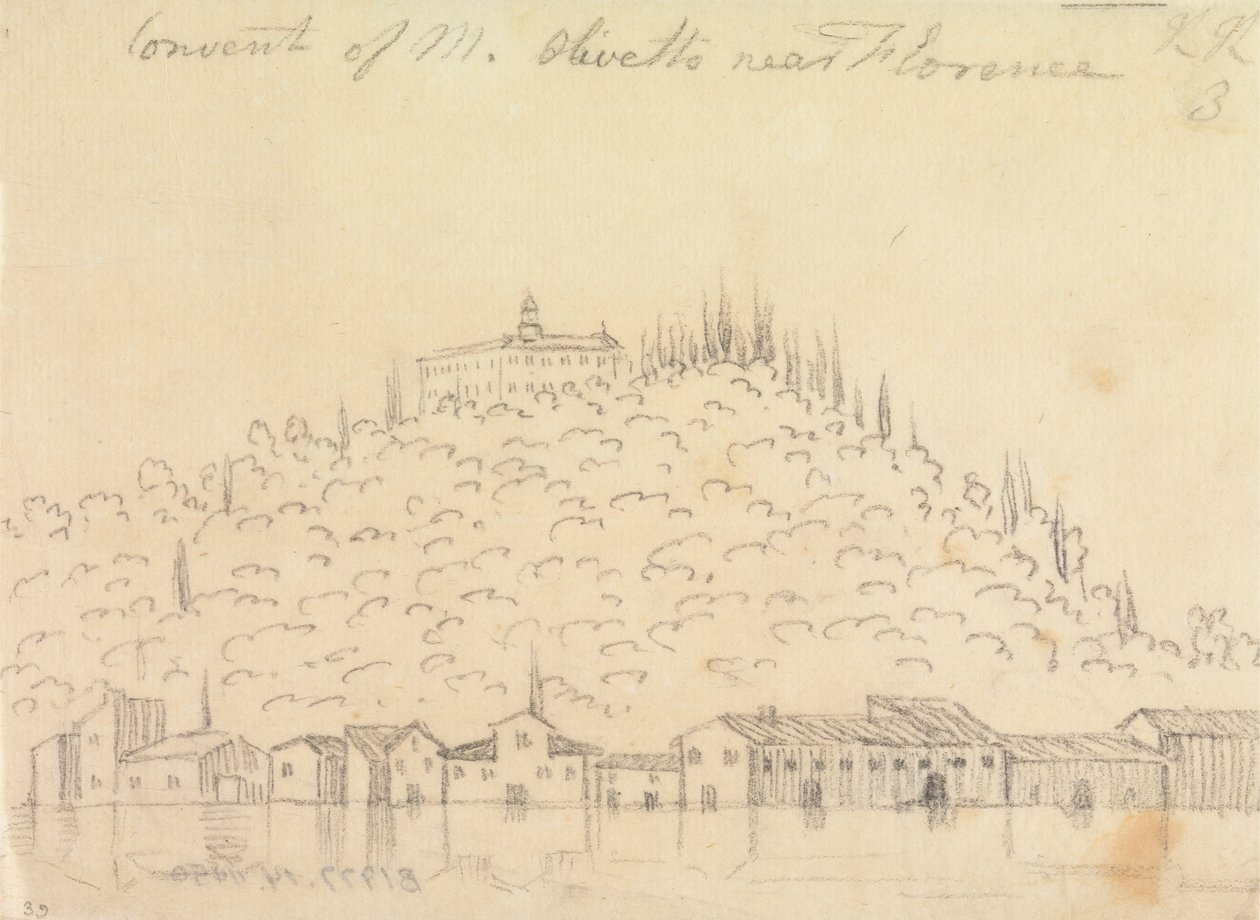 Convent of M. Olivetto near Florence
3
B1977.14.
39